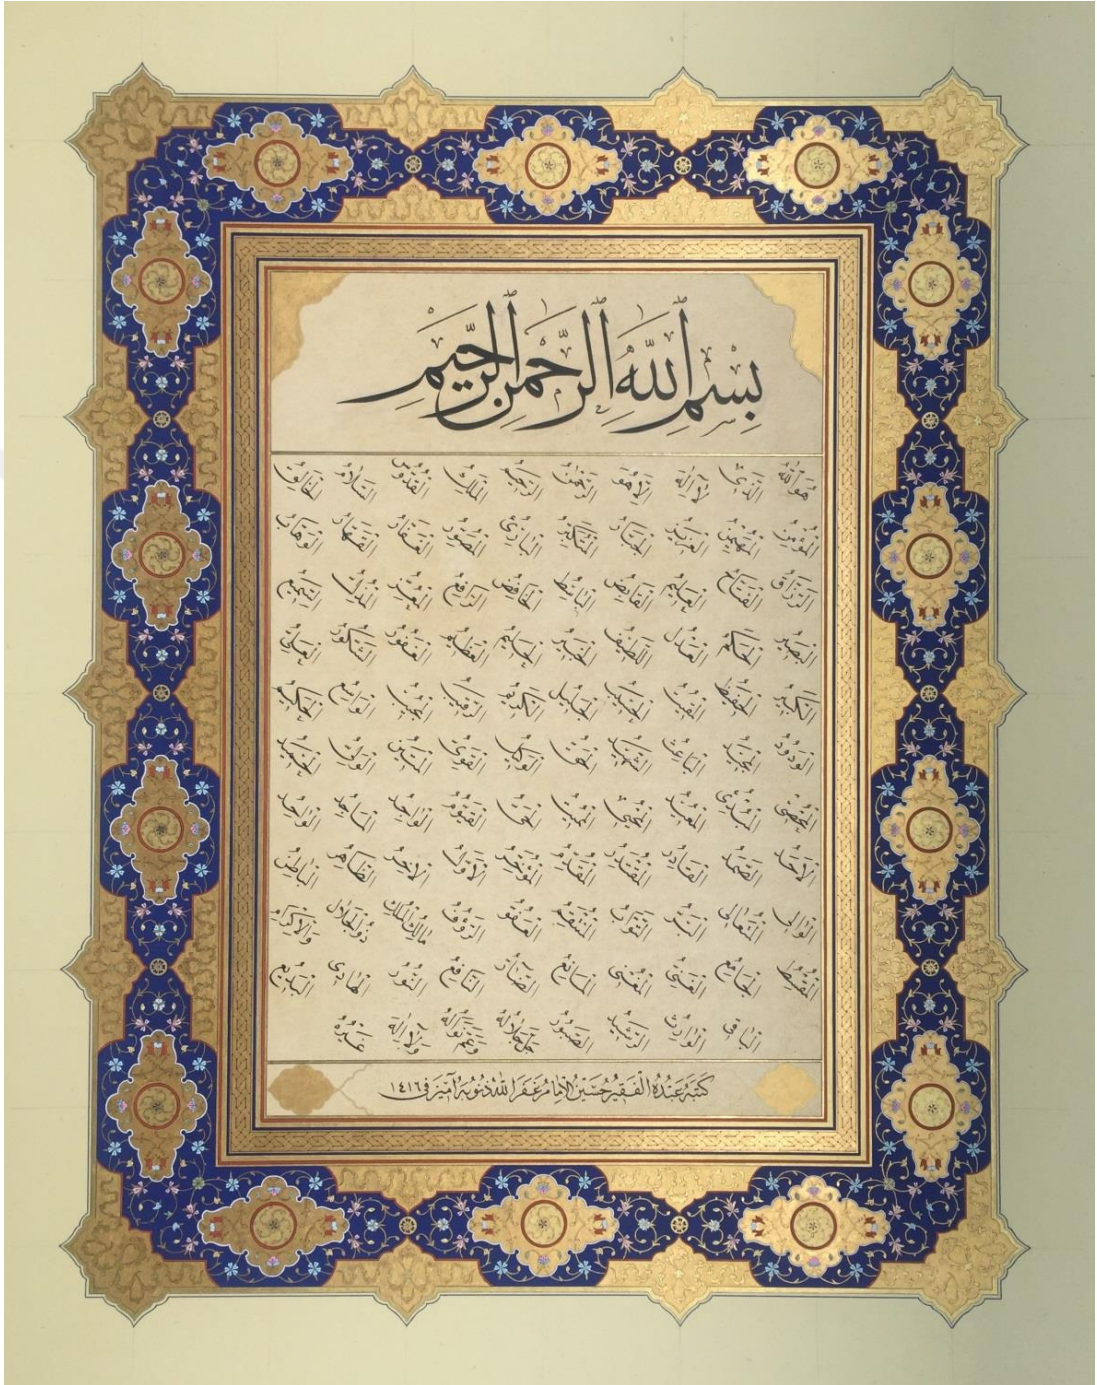 بِسْمِ اللّٰهِ الرَّحْمٰنِ الرَّحِيمِ
هُوَ اللّٰهُ الَّذِي لَا إِلٰهَ إِلَّا هُوَ الرَّحْمٰنُ الرَّحِيمُ الْمَلِكُ الْقُدُّوسُ السَّلَامُ الْخَالِقُ
الْمُؤْمِنُ الْمُهَيْمِنُ الْعَزِيزُ الْجَبَّارُ الْمُتَكَبِّرُ الْبَارِئُ الْمُصَوِّرُ الْغَفَّارُ الْقَهَّارُ الْوَهَّابُ
الرَّزَّاقُ الْفَتَّاحُ الْعَلِيمُ الْقَابِضُ الْبَاسِطُ الْخَافِضُ الرَّافِعُ الْمُعِزُّ الْمُذِلُّ السَّمِيعُ
الْبَصِيرُ الْحَكَمُ الْعَدْلُ اللَّطِيفُ الْخَبِيرُ الْحَلِيمُ الْعَظِيمُ الْغَفُورُ الشَّكُورُ الْعَلِيُّ
الْكَبِيرُ الْحَفِيظُ الْمُقِيتُ الْحَسِيبُ الْجَلِيلُ الْكَرِيمُ الرَّقِيبُ الْمُجِيبُ الْوَاسِعُ الْحَكِيمُ
الْوَدُودُ الْمَجِيدُ الْبَاعِثُ الشَّهِيدُ الْحَقُّ الْوَكِيلُ الْقَوِيُّ الْمَتِينُ الْوَلِيُّ الْحَمِيدُ
الْمُحْصِي الْمُبْدِئُ الْمُعِيدُ الْمُحْيِي الْمُمِيتُ الْحَيُّ الْقَيُّومُ الْوَاجِدُ الْمَاجِدُ الْوَاحِدُ
الْأَحَدُ الصَّمَدُ الْقَادِرُ الْمُقْتَدِرُ الْمُقَدِّمُ الْمُؤَخِّرُ الْأَوَّلُ الْآخِرُ الظَّاهِرُ الْبَاطِنُ
الْوَالِي الْمُتَعَالِي الْبَرُّ التَّوَّابُ الْمُنْتَقِمُ الْعَفُوُّ الرَّؤُفُ مَالِكُ الْمُلْكِ ذُو الْجَلَالِ وَالْإِكْرَامِ
الْمُقْسِطُ الْجَامِعُ الْغَنِيُّ الْمُغْنِي الْمَانِعُ الضَّارُّ النَّافِعُ النُّورُ الْهَادِي الْبَدِيعُ
الْبَاقِي الْوَارِثُ الرَّشِيدُ الصَّبُورُ جَلَّ جَلَالُهُ وَعَمَّ نَوَالُهُ وَلَا إِلٰهَ غَيْرُهُ
كَتَبَهُ عَبْدُهُ الْفَقِيرُ حُسَيْنُ الْإِمَامُ غَفَرَ اللّٰهُ ذُنُوبَهُ آمِينَ فِي ١٤١٦